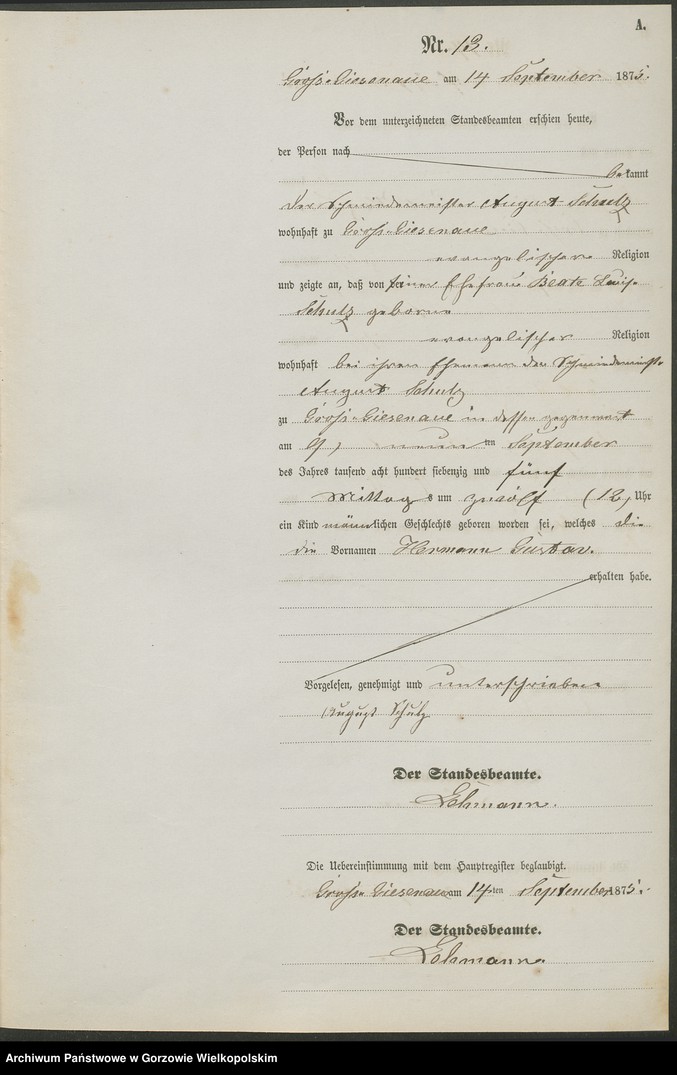 A.
Nr. 13.
Gross-Giesenaue am 14 September 1875.
Vor dem unterzeichneten Standesbeamten erschien heute,
der Person nach
bekannt
der Schmiedemeister August Schulz
wohnhaft zu Gross-Giesenaue
evangelischer Religion
und zeigte an, daß von seiner Ehefrau Beate Luise
Schulz geborne
evangelischer Religion
wohnhaft bei ihren Ehemann den Schmiedemeister
August Schulz
zu Gross-Giesenaue in dessen gegenwart
am 9, neun ten September
des Jahres tausend acht hundert siebenzig und fünf
Mittags um zwölf (12) Uhr
ein Kind männlichen Geschlechts geboren worden sei, welches die
die Vornamen Hermann Gustav.
erhalten habe.
Vorgelesen, genehmigt und unterschrieben
August Schulz
Der Standesbeamte.
Lehmann.
Die Uebereinstimmung mit dem Hauptregister beglaubigt.
Gross-Giesenaue am 14ten September 1875.
Der Standesbeamte.
Lehmann.
Archiwum Państwowe w Gorzowie Wielkopolskim